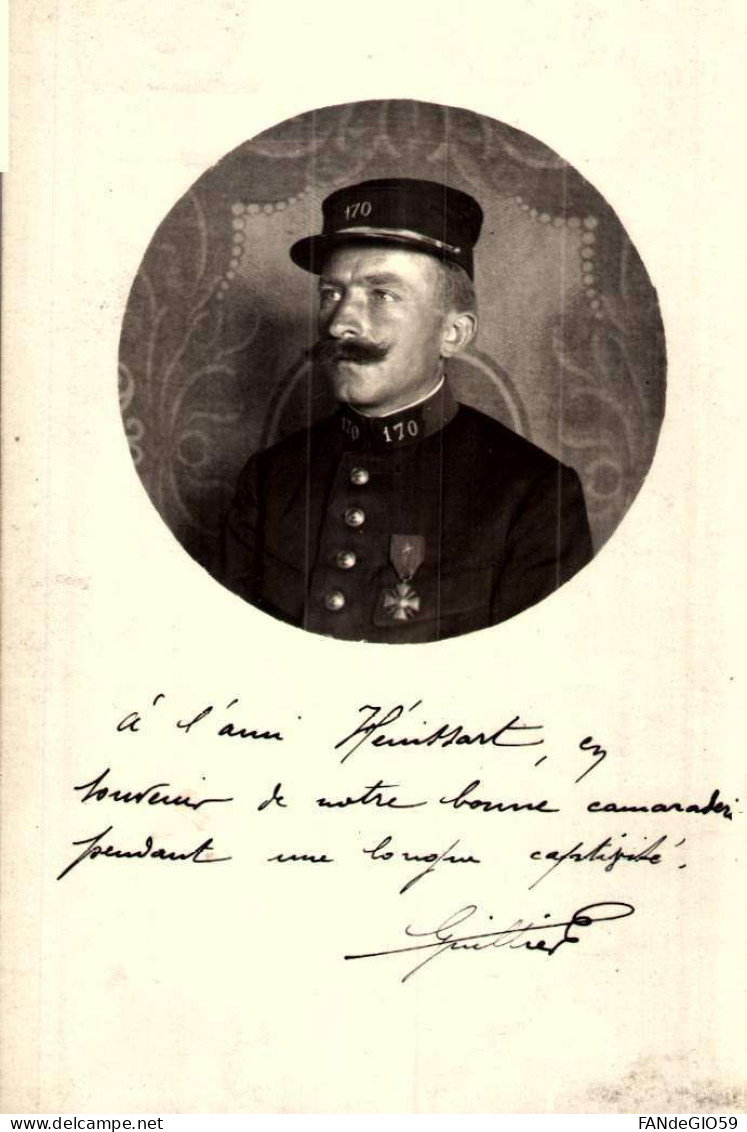 170
170 170
à l'ami Hénissart, en
souvenir de notre bonne camaraderi
pendant une longue captivité.
Guillier
www.delcampe.net
FANdeGIO59